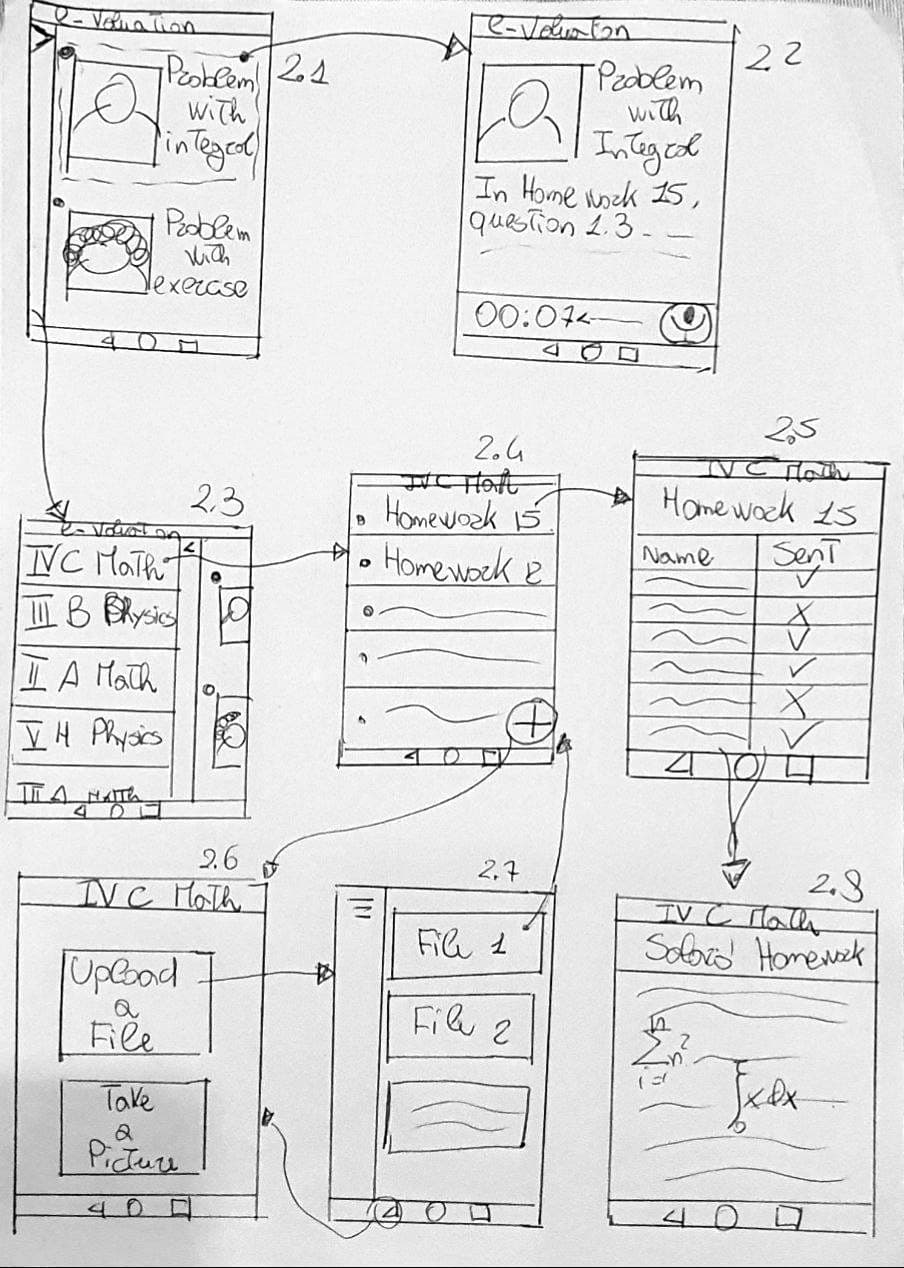 e-Valuation
2.1
Problem
with
integral
Problem
with
exercise
e-Valuaton
2.2
Problem
with
Integral
In Homework 15,
question 1.3
00:07
2.3
e-Valuation
IV C Math
III B Physics
II A Math
V H Physics
III A Math
2.4
IV C Math
Homework 15
Homework 2
2.5
IV C Math
Homework 15
Name Sent
2.6
IV C Math
Upload
a
File
Take
a
Picture
2.7
File 1
File 2
IV C Math
Homework
∑ n²
i=1
∫ x dx